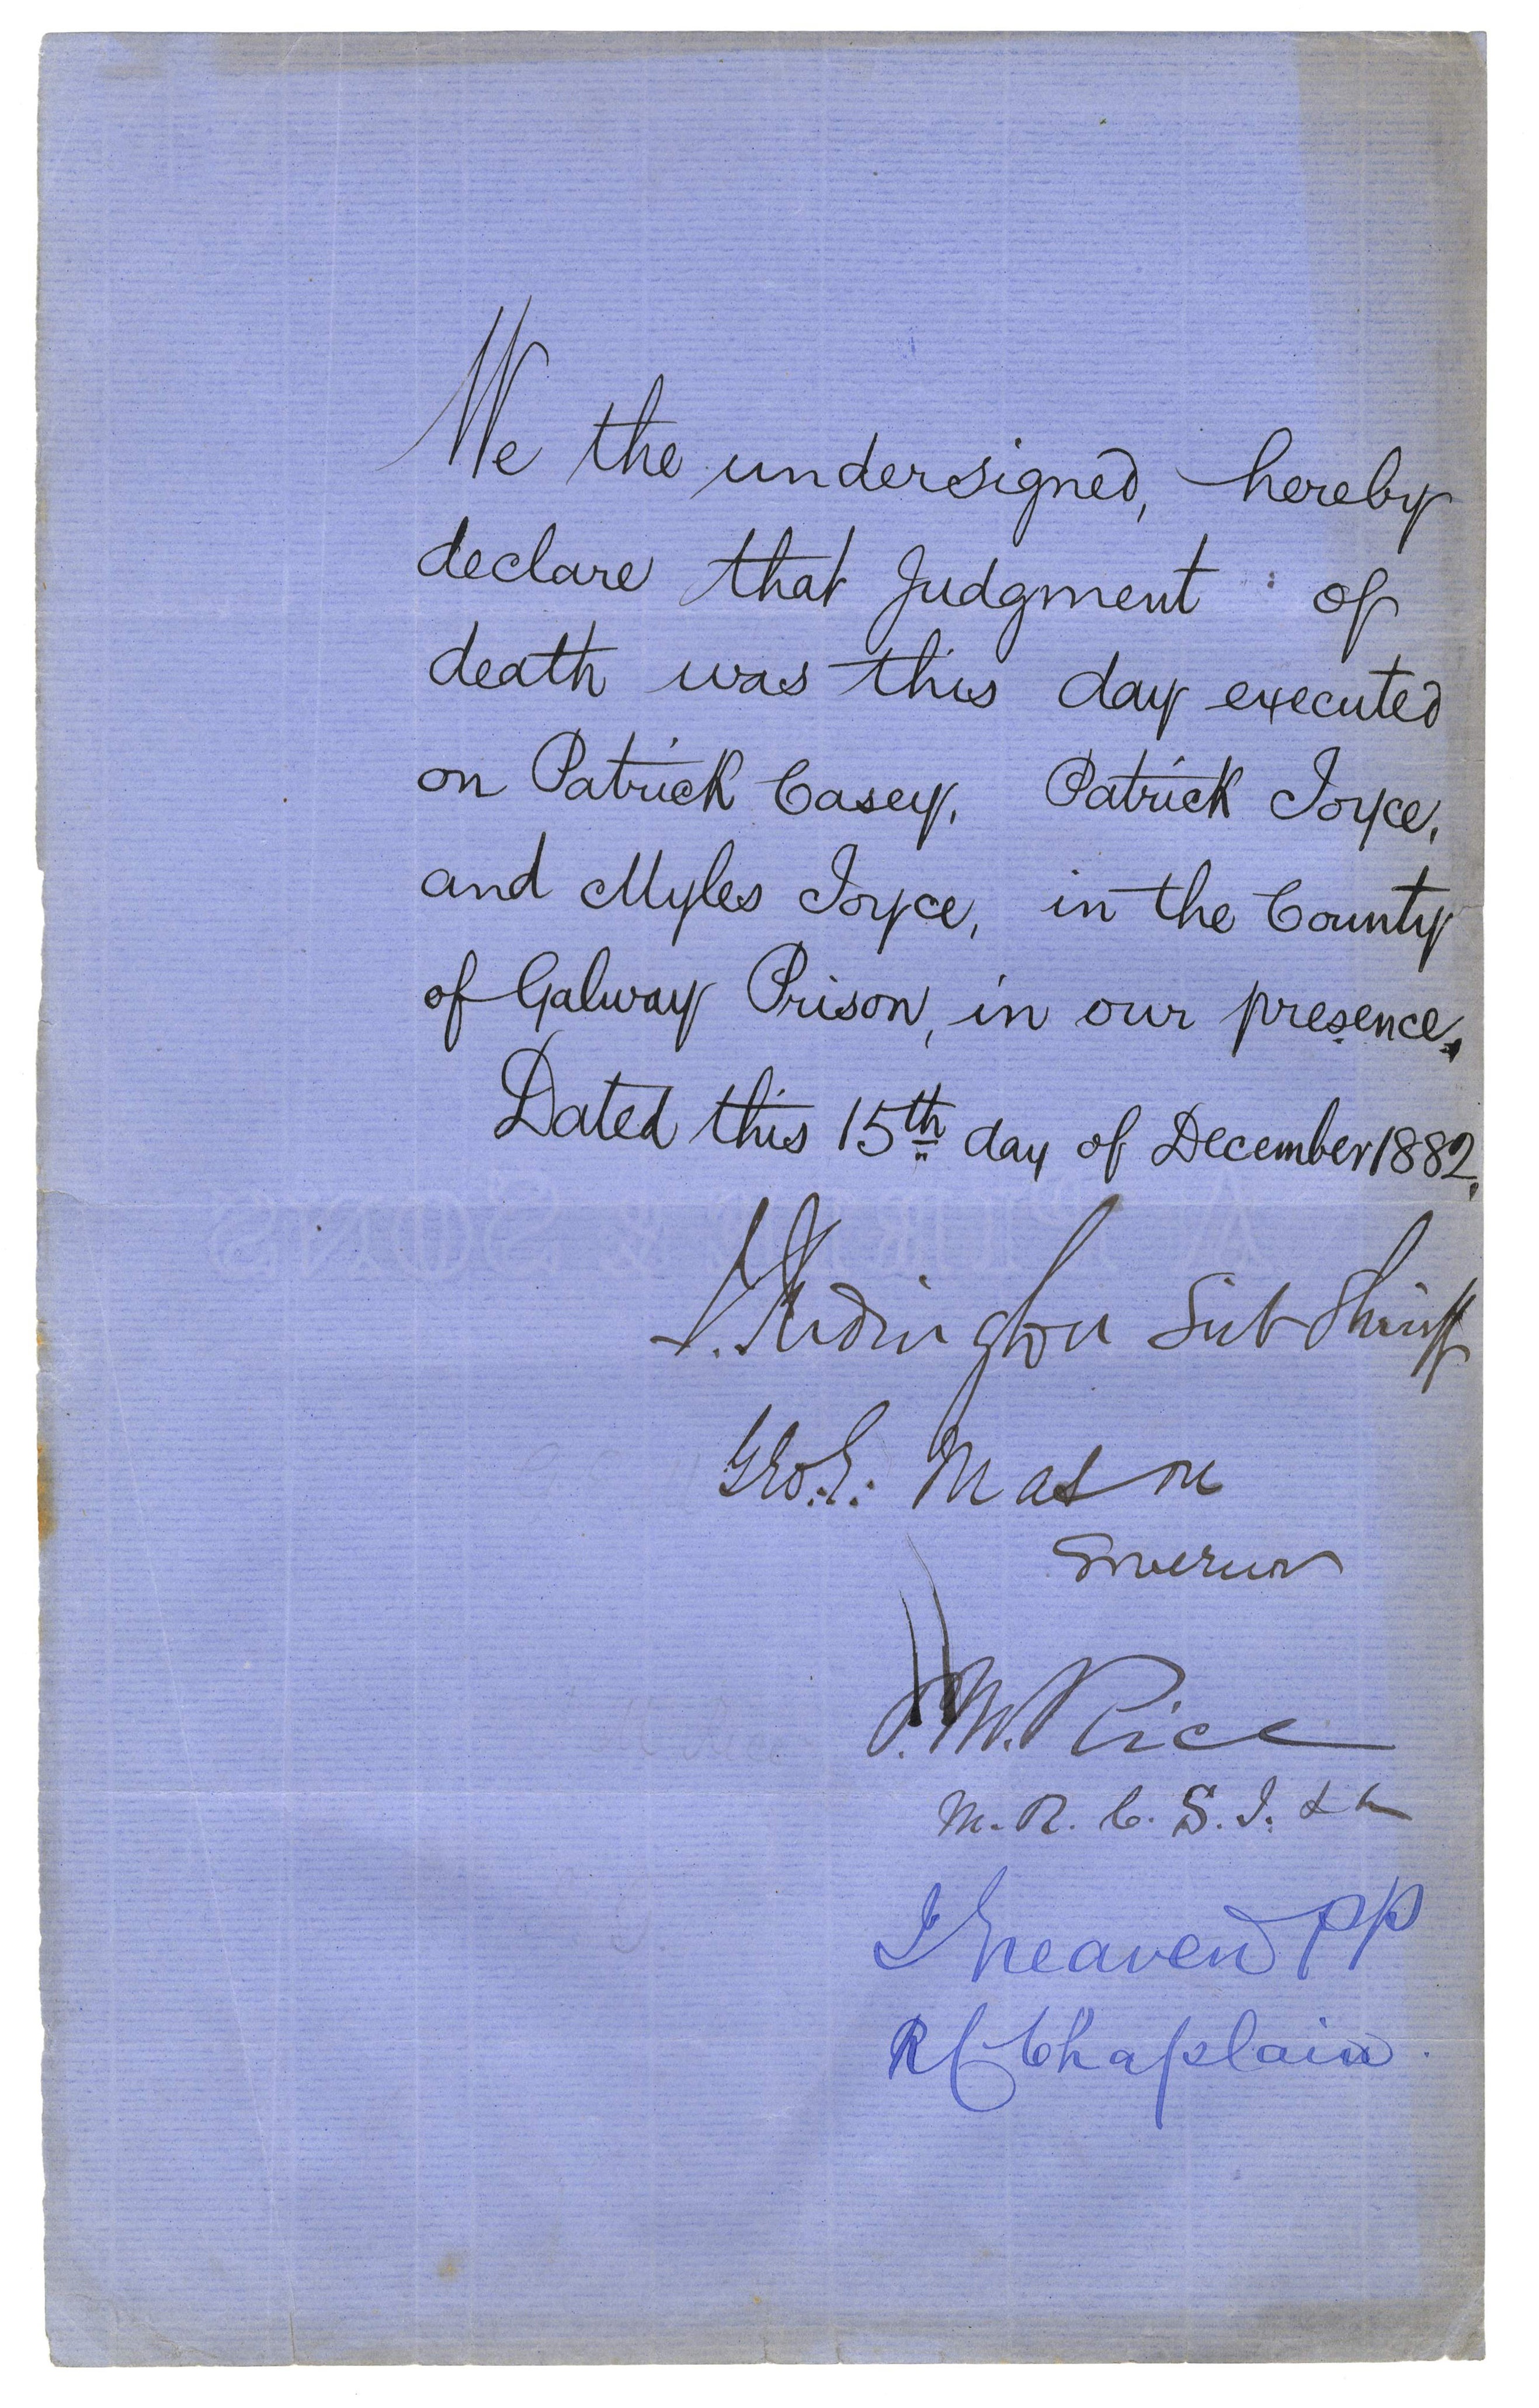 We the undersigned, hereby
declare that Judgment of
death was this day executed
on Patrick Casey, Patrick Joyce,
and Myles Joyce, in the County
of Galway Prison, in our presence.
Dated this 15th day of December 1882.
Redington Sub Sheriff
Geo. E. Mason
Governor
M. Rice
M.R.C.S.I. &c
J Greaven PP
RC Chaplain.
& Sons